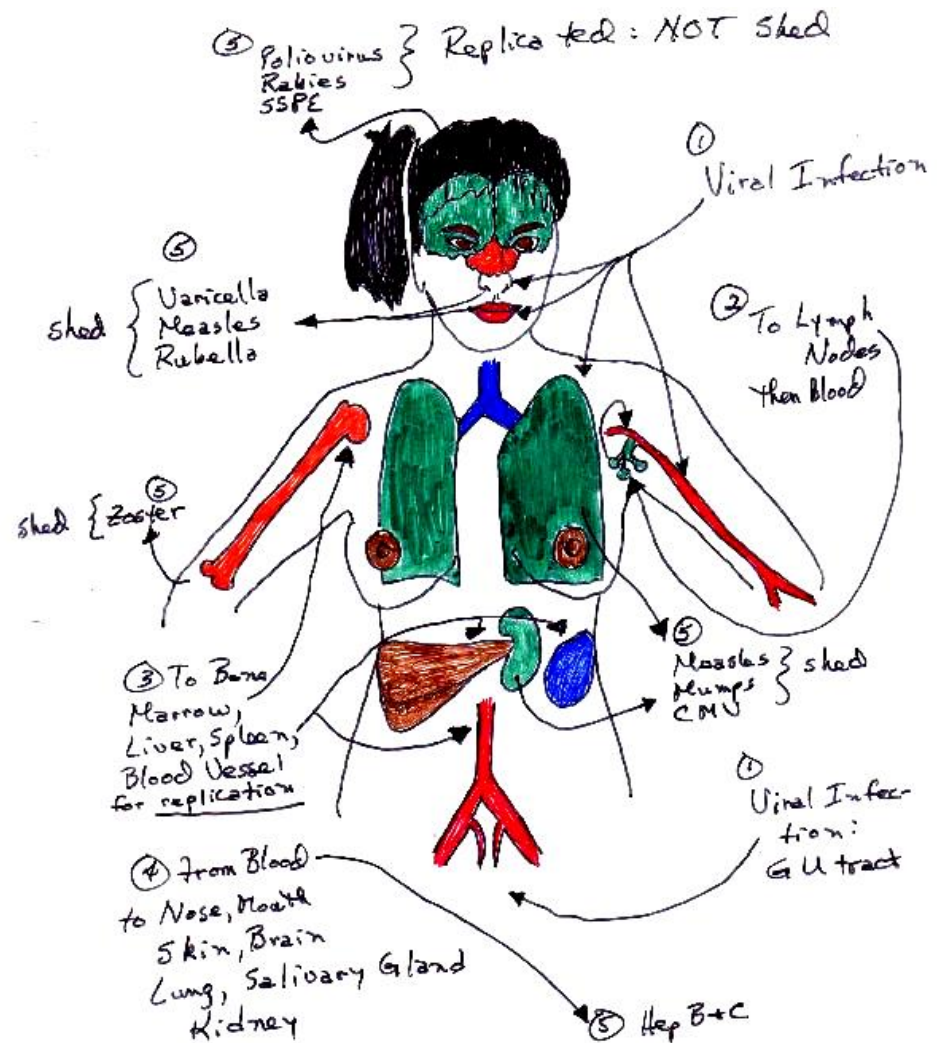 ⑤ Poliovirus } Replicated: NOT shed
Rabies
SSPE
① Viral Infection
⑤
shed { Varicella
Measles
Rubella
② To Lymph
Nodes
then Blood
⑤
shed { Zoster
③ To Bone
Marrow,
Liver, Spleen,
Blood Vessel
for replication
⑤
Measles } shed
Mumps
CMV
①
Viral Infec-
tion:
GU tract
④ From Blood
to Nose, Mouth
Skin, Brain
Lung, Salivary Gland
Kidney
⑤ Hep B+C